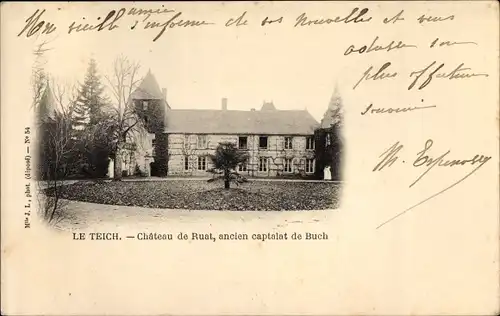 Mon vieil amie
s'informe de vos nouvelles et vous
adresse son
plus affectueux
souvenir
M. Espenosy
Mlle J. L. phot. (déposé) — No 54
LE TEICH. — Château de Ruat, ancien captalat de Buch